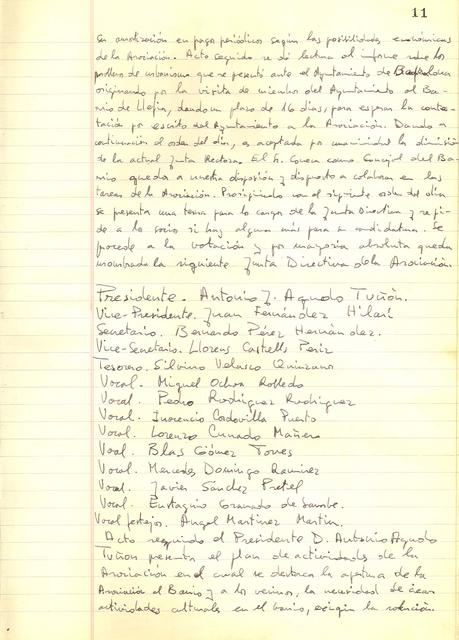 11
su amortización en pagos periódicos según las posibilidades económicas
de la Asociación. Acto seguido se dé lectura al informe sobre los
problemas de urbanismo que se presentó ante el Ayuntamiento de Badalona
originando por la visita de miembros del Ayuntamiento al Ba-
rrio de Llefia, dando un plazo de 16 dias, para esperar la contes-
tación por escrito del Ayuntamiento a la Asociación. Dando a
continuación el orden del día, es aceptada por unanimidad la dimisión
de la actual Junta Rectora. El Sr. como Concejal del Ba-
rrio queda a nuestra disposición y dispuesto a colaborar en las
tareas de la Asociación. Prosiguiendo con el siguiente orden del día
se presenta una terna para los cargos de la Junta Directiva y se pi-
de a los socios si hay alguna más para su candidatura. Se
procede a la votación y por mayoria absoluta queda
nombrada la siguiente Junta Directiva de la Asociación.
Presidente. Antonio J. Agudo Tuñón.
Vice-Presidente. Juan Fernández Hilari
Secretario. Bernardo Pérez Hernández.
Vice-Secretario. Llorens Castells Periz
Tesorero. Silvino Velasco Quinzano
Vocal. Miguel Ochoa Robledo
Vocal. Pedro Rodriguez Rodriguez
Vocal. Inocencio Cordovilla Puerto
Vocal. Lorenzo Cunado Mañero
Vocal. Blas Gómez Torres
Vocal. Mercedes Domingo Ramirez
Vocal. Javier Sánchez Pretel
Vocal. Eutaquio Granado de
Vocal festejos. Angel Martinez Martin.
Acto seguido el Presidente D. Antonio Agudo
Tuñón presenta el plan de actividades de la
Asociación en el cual se destaca la apertura de la
Asociación al Barrio y a los vecinos, la necesidad de crear
actividades culturales en el barrio, exigir la solución.